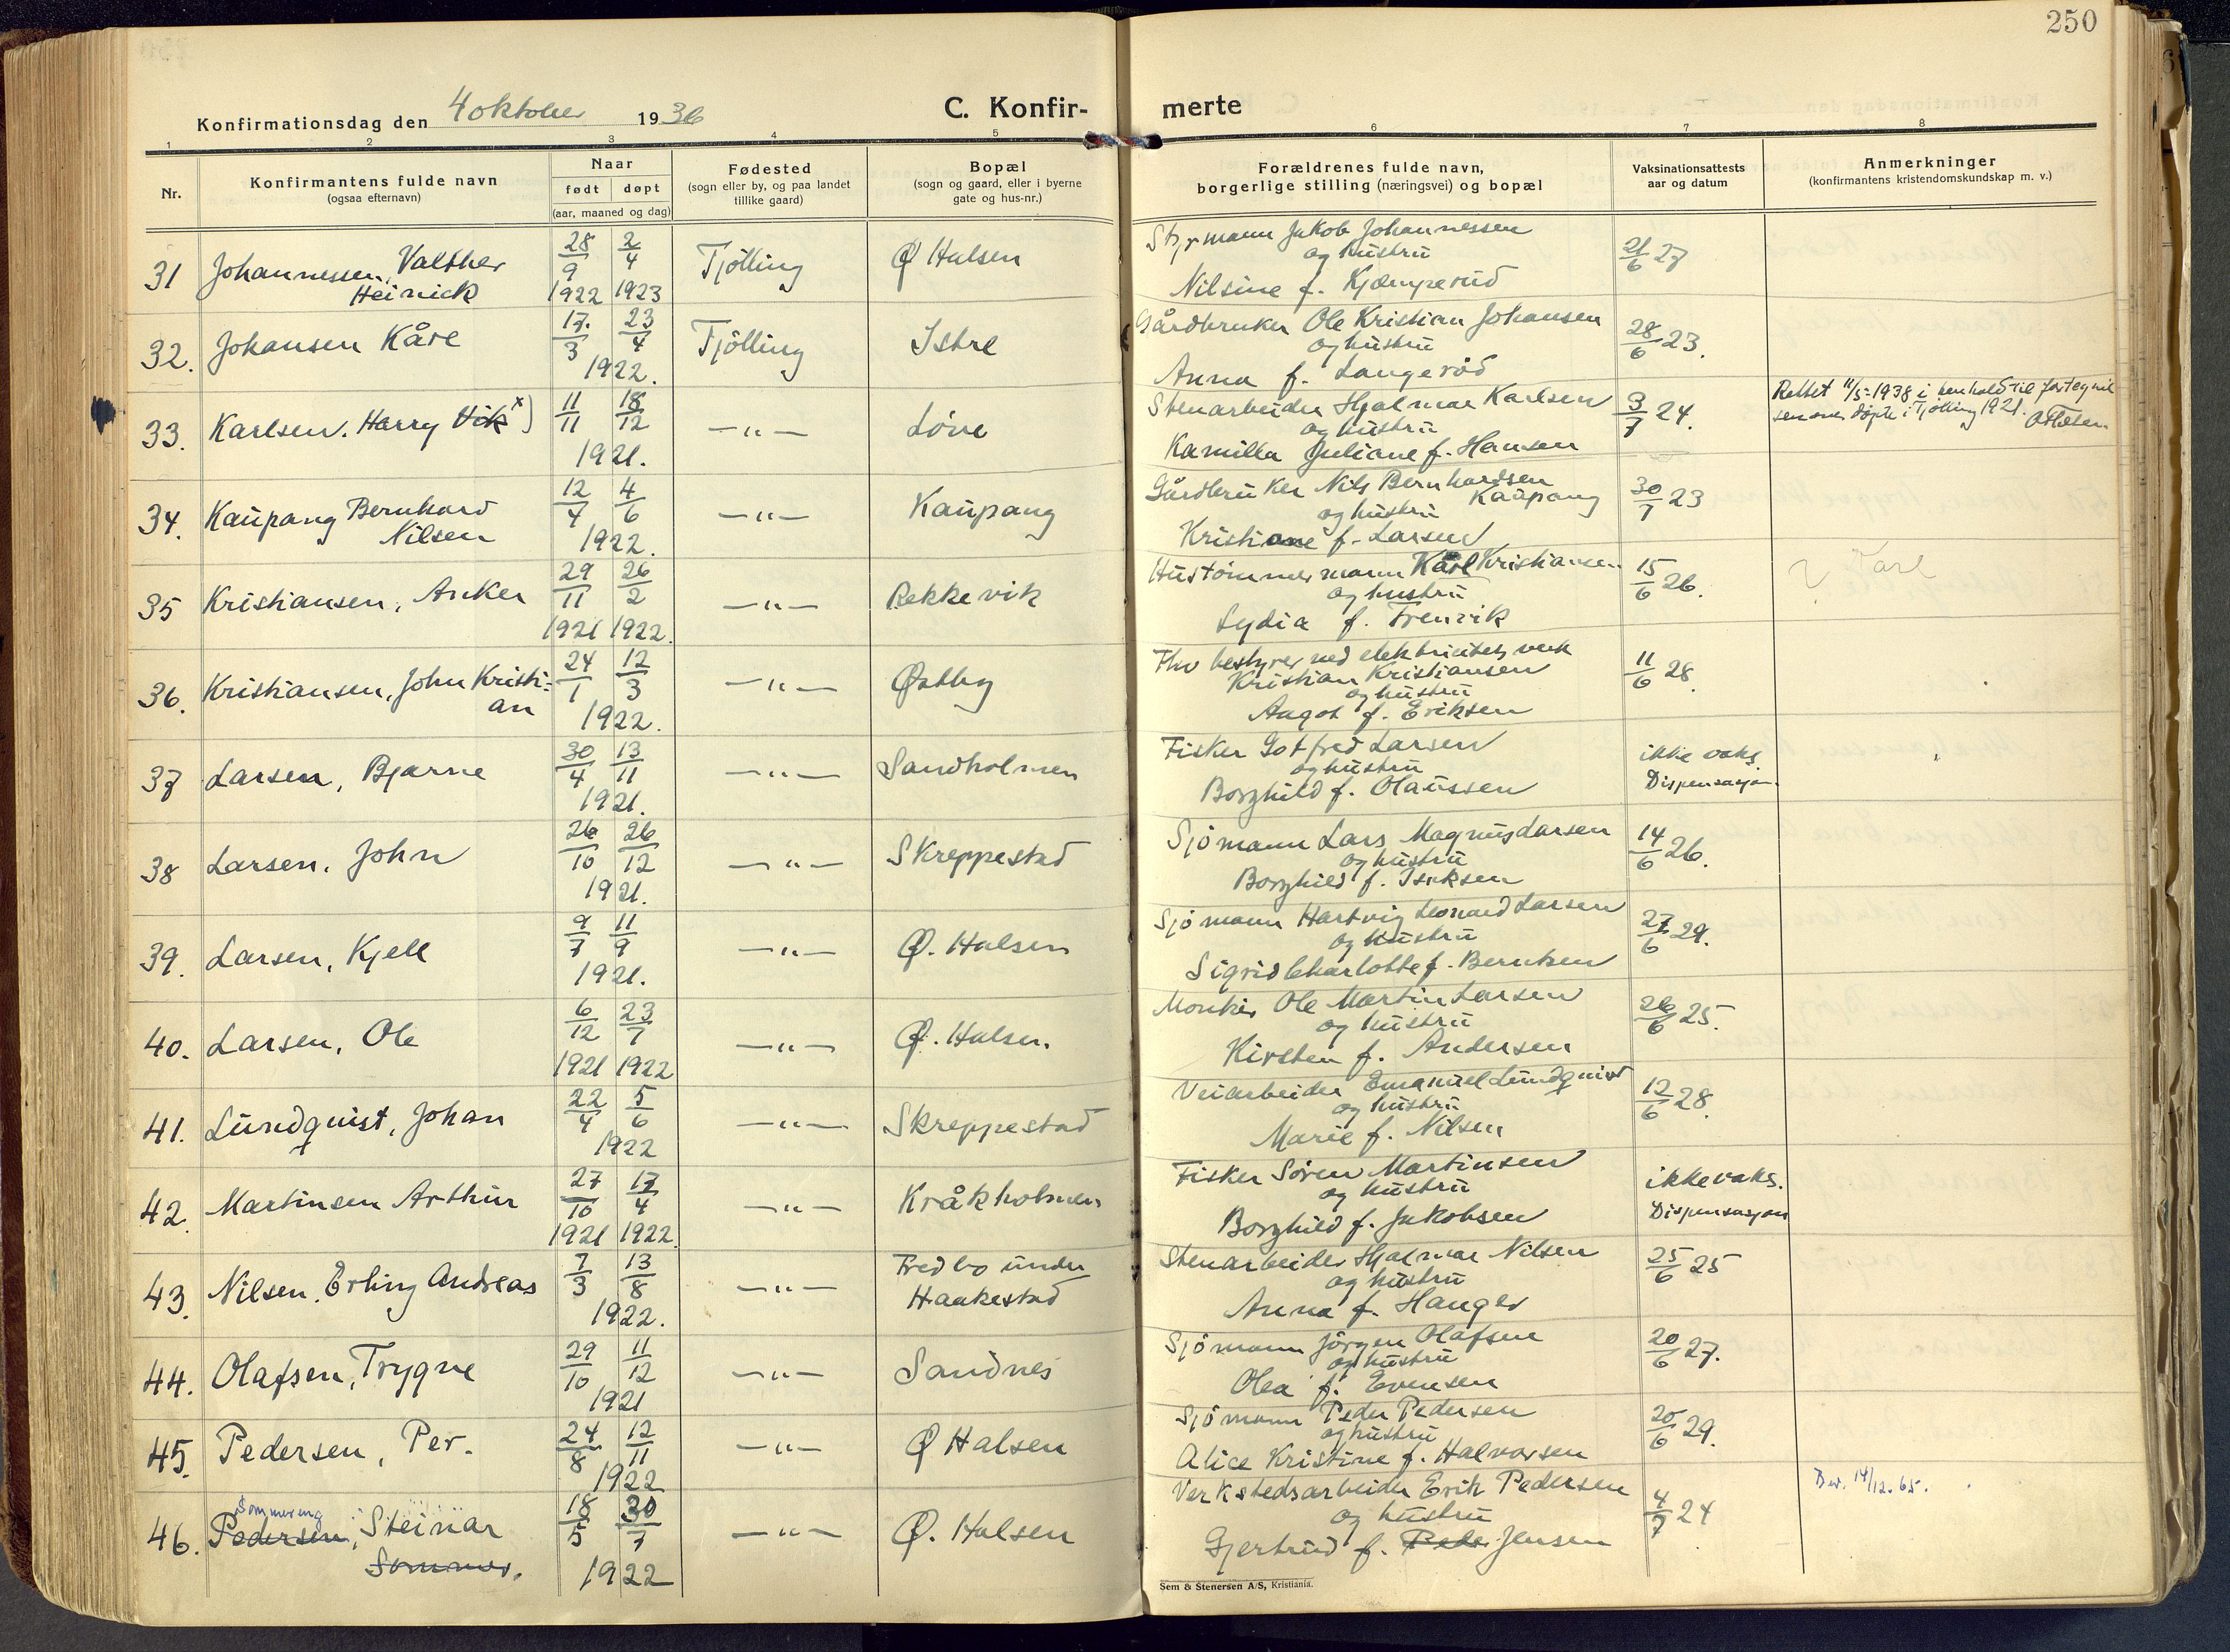 250
Konfirmationsdag den 4 oktober 1936
C. Konfir-
merte
1 2 3 4 5 6 7 8
Nr.
Konfirmantens fulde navn
(ogsaa efternavn)
Naar
født døpt
(aar, maaned og dag)
Fødested
(sogn eller by, og paa landet
tillike gaard)
Bopæl
(sogn og gaard, eller i byerne
gate og hus-nr.)
Forældrenes fulde navn,
borgerlige stilling (næringsvei) og bopæl
Vaksinationsattests
aar og datum
Anmerkninger
(konfirmantens kristendomskundskap m. v.)
31 Johannessen, Valther
Heinick
28/9 1922 2/4 1923
Tjölling
Ø Halsen
Styrmann Jakob Johannessen
og hustru
Nilsine f. Kjæmperud
21/6 27
32. Johansen Kåre
17/3 23/4 1922.
Tjölling
Istre
Gårdbruker Ole Kristian Johansen
og hustru
Anna f. Langeröd
28/6 23.
33. Karlsen. Harry Vik x)
11/11 18/12 1921.
—"—
Löve
Stenarbeider Hjalmar Karlsen
og hustru
Kamilla Juliane f. Hansen
3/7 24.
Rettet 11/5-1938 i henhold til fortegnel
sen over döpte i Tjölling 1921.
34. Kaupang Bernhard
Nilsen
12/4 4/6 1922.
—"—
Kaupang
Gårdbruker Nils Bernhardsen
Kaupang
og hustru
Kristiane f. Larsen
30/7 23
35 Kristiansen, Anker
29/11 1921 26/2 1922.
—"—
Rekkevik
Hustömmermann Karl Kristiansen
og hustru
Lydia f. Frenvik
15/6 26.
Karl
36. Kristiansen, John Kristi=
an
24/1 12/3 1922.
—"—
Østby
Fhv bestyrer ved elektricitets verk
Kristian Kristiansen
og hustru
Aagot f. Eriksen
11/6 28.
37 Larsen, Bjarne
30/4 13/11 1921.
—"—
Sandholmen
Fisker Gotfred Larsen
og hustru
Borghild f. Olaussen
ikke vaks.
Dispensasjon.
38 Larsen, John
26/10 26/12 1921.
—"—
Skreppestad
Sjömann Lars Magnus Larsen
og hustru
Borghild f. Isaksen
14/6 26.
39. Larsen, Kjell
9/7 11/9 1921.
—"—
Ø. Halsen
Sjömann Hartvig Leonard Larsen
og hustru
Sigrid Charlotte f. Berntsen
27/6 29.
40. Larsen, Ole
6/12 1921 23/7 1922
—"—
Ø. Halsen.
Ole Martin Larsen
og hustru
Kirsten f. Andersen
26/6 25.
41. Lundquist, Johan
22/4 5/6 1922
—"—
Skreppestad
Veiarbeider Emanuel Lundquist
og hustru
Marie f. Nilsen
12/6 28.
42. Martinsen Arthur
27/10 1921 17/4 1922.
—"—
Kråkholmen
Fisker Sören Martinsen
og hustru
Borghild f. Jakobsen
ikke vaks.
Dispensasjon
43. Nilsen. Erling Andreas
7/3 13/8 1922.
—"—
Fredbo under
Haakestad
Stenarbeider Hjalmar Nilsen
og hustru
Anna f. Hanger
25/6 25
44. Olafsen, Trygve
29/10 11/12 1921
—"—
Sandnes
Sjömann Jörgen Olafsen
og hustru
Olea f. Evensen
20/6 27.
45. Pedersen, Per.
24/8 12/11 1922
—"—
Ø Halsen
Sjömann Peder Pedersen
og hustru
Alice Kristine f. Halvorsen
20/6 29.
Sommereng
46. Pedersen, Steinar
Sommer.
18/5 30/7 1922
—"—
Ø. Halsen
Verkstedsarbeider Erik Pedersen
og hustru
Gjertrud f. Peder Jensen
4/7 24
Bev. 14/12.65.
Sem & Stenersen A/S, Kristiania.